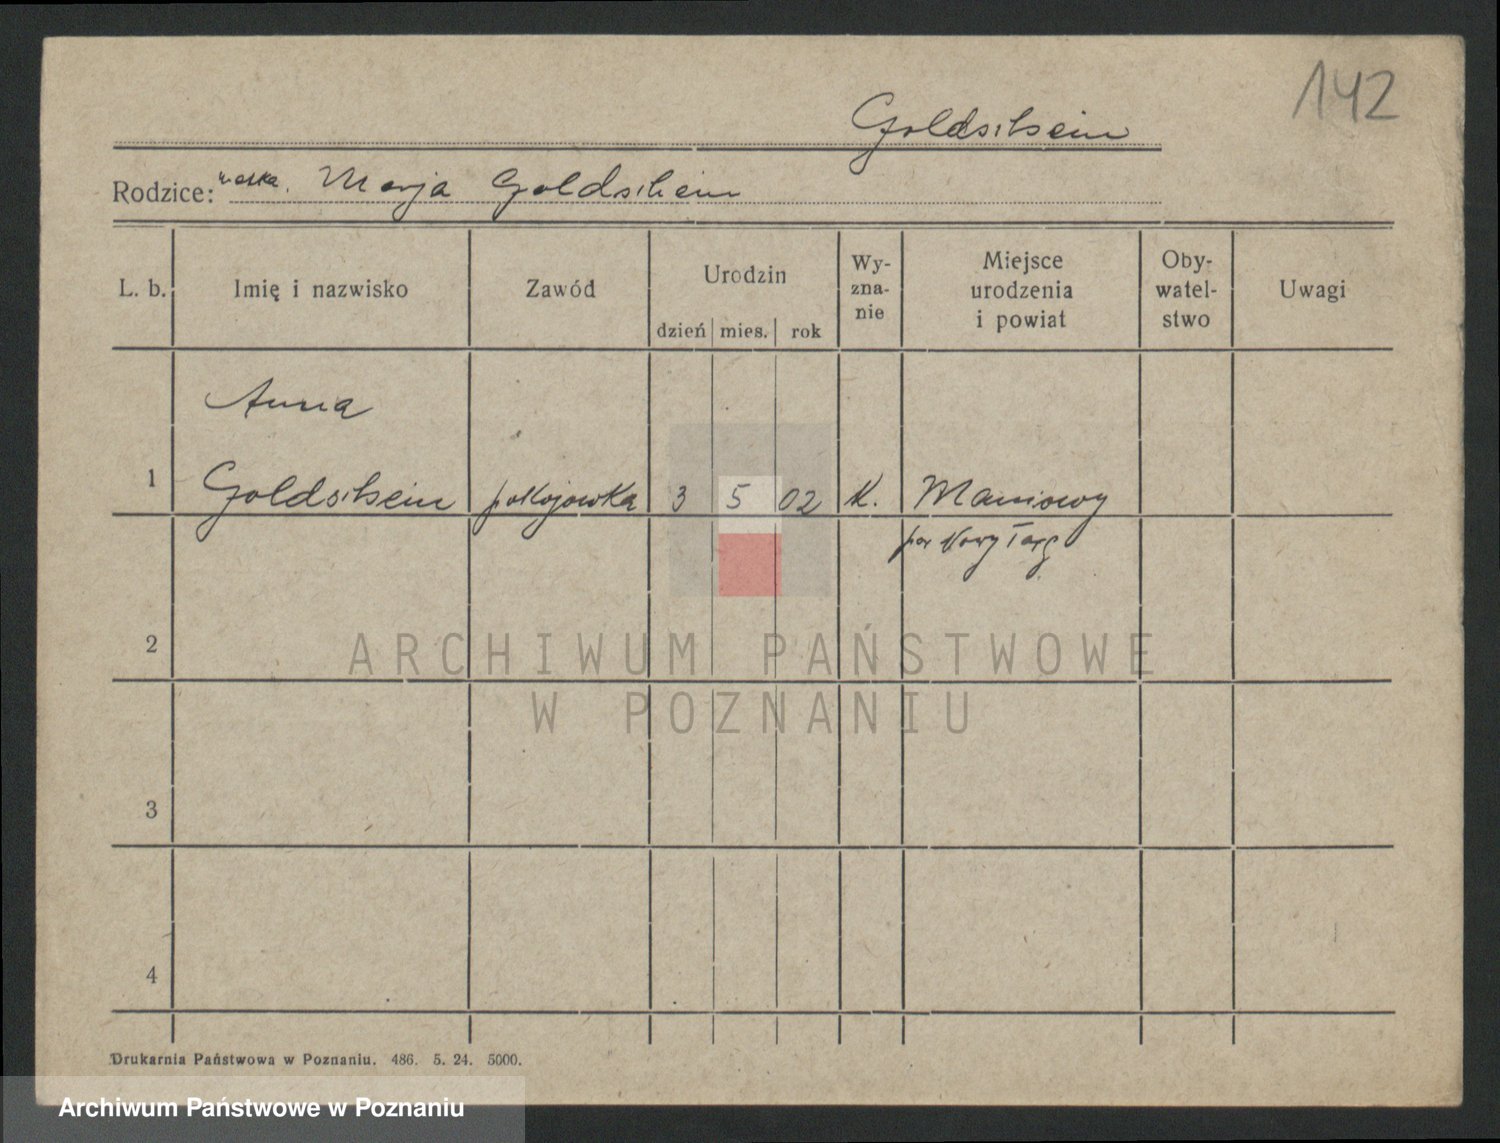 142
Goldschein
Rodzice: matka. Marja Goldschein
L. b. Imię i nazwisko Zawód Urodzin dzień mies. rok Wy-zna-nie Miejsce urodzenia i powiat Oby-watel-stwo Uwagi
Anna
1 Goldschein pokojówka 3 5 02 k. Maniowy
pow Nowy Targ
2
ARCHIWUM PAŃSTWOWE
W POZNANIU
3
4
Drukarnia Państwowa w Poznaniu. 486. 5. 24. 5000.
Archiwum Państwowe w Poznaniu